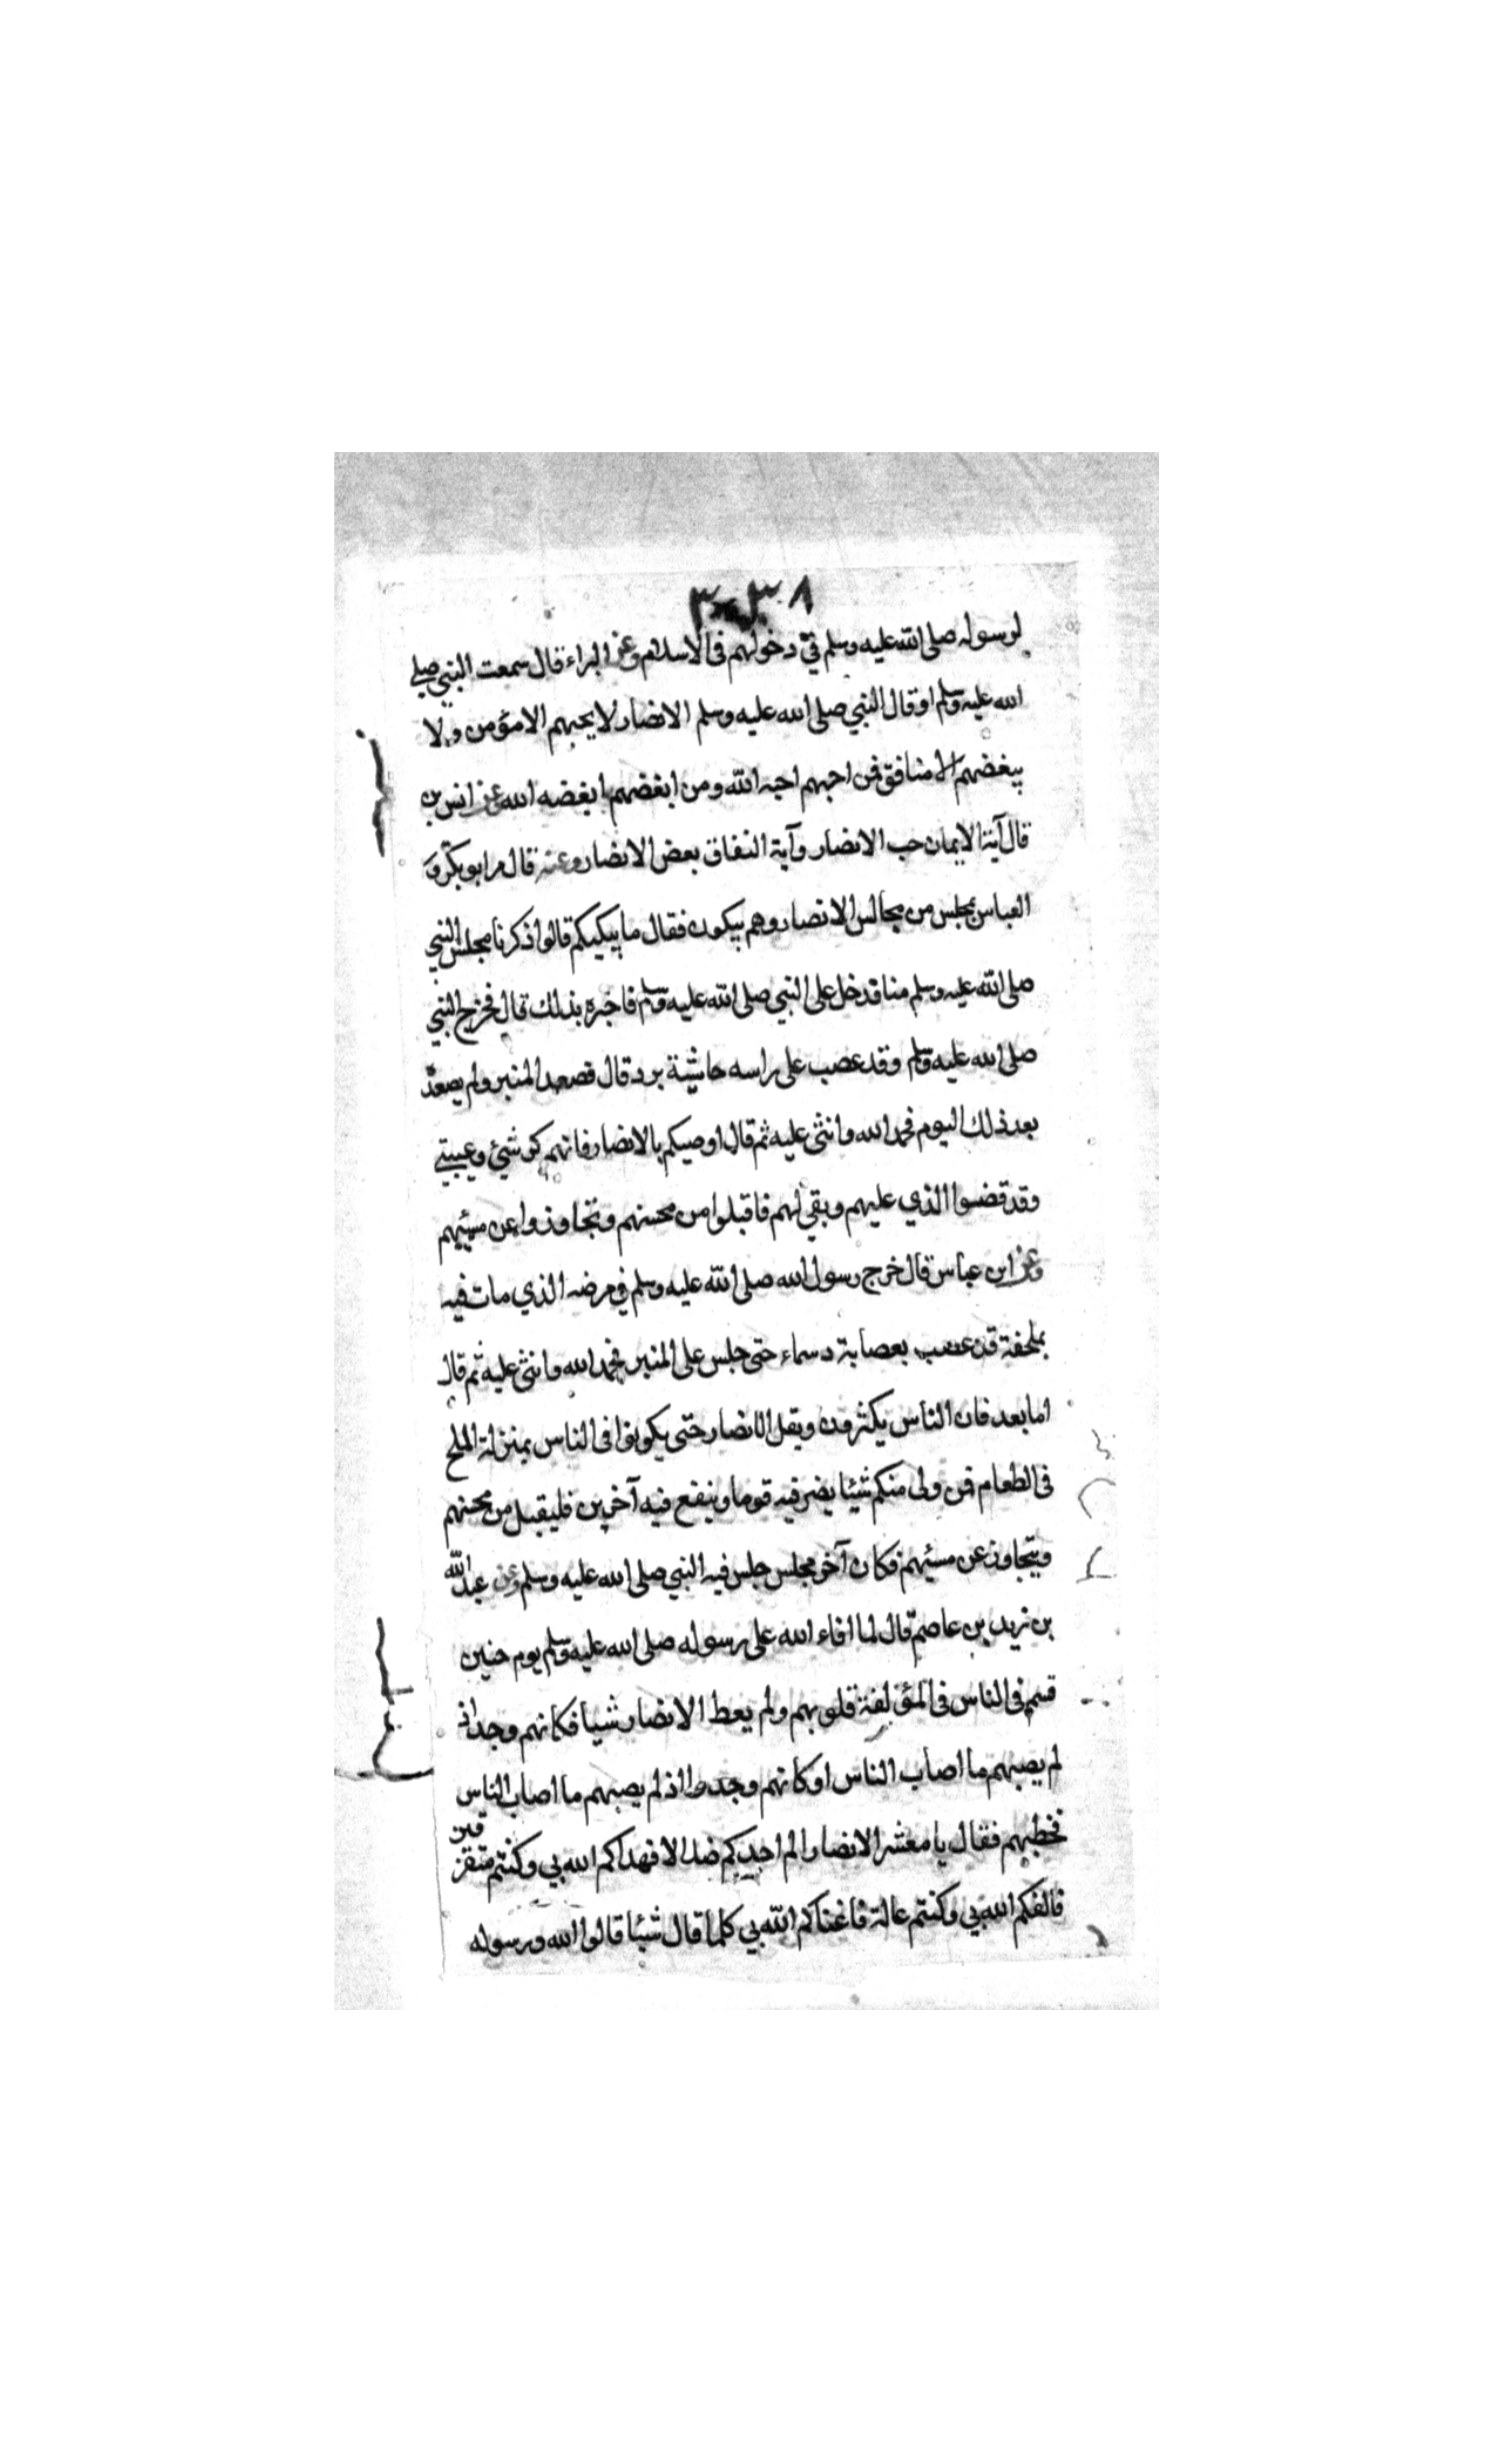 ٣٠٣٨
لرسوله صلى الله عليه وسلم في دخولهم في الاسلام وعن البراء قال سمعت النبي صلى
الله عليه وسلم او قال النبي صلى الله عليه وسلم الانصار لا يحبهم الا مؤمن ولا
يبغضهم الا منافق فمن احبهم احبه الله ومن ابغضهم ابغضه الله عن انس بن
قال آية الايمان حب الانصار وآية النفاق بعض الانصار وعنه قال مر ابو بكر و
العباس بمجلس من مجالس الانصار وهم يبكون فقال ما يبكيكم قالوا ذكرنا مجلس النبي
صلى الله عليه وسلم منا فدخل على النبي صلى الله عليه وسلم فاخبره بذلك قال فخرج النبي
صلى الله عليه وسلم وقد عصب على راسه حاشية برد قال فصعد المنبر ولم يصعد
بعد ذلك اليوم فحمد الله واثنى عليه ثم قال اوصيكم بالانصار فانهم كرشي وعيبتي
وقد قضوا الذي عليهم وبقي لهم فاقبلوا من محسنهم وتجاوزوا عن مسيئهم
وعن ابن عباس قال خرج رسول الله صلى الله عليه وسلم في مرضه الذي مات فيه
بملحفة قد عصب بعصابة دسماء حتى جلس على المنبر فحمد الله واثنى عليه ثم قال
اما بعد فان الناس يكثرون ويقل الانصار حتى يكونوا في الناس بمنزلة الملح
في الطعام فمن ولى منكم شيئا يضر فيه قوما وينفع فيه آخرين فليقبل من محسنهم
ويتجاوز عن مسيئهم فكان آخر مجلس جلس فيه النبي صلى الله عليه وسلم وعن عبد الله
بن زيد بن عاصم قال لما افاء الله على رسوله صلى الله عليه وسلم يوم حنين
قسم في الناس في المؤلفة قلوبهم ولم يعط الانصار شيا فكانهم وجد اذ
لم يصبهم ما اصاب الناس او كانهم وجدوا اذ لم يصبهم ما اصاب الناس
فخطبهم فقال يا معشر الانصار الم اجدكم ضلالا فهداكم الله بي وكنتم متفرقين
فالفكم الله بي وكنتم عالة فاغناكم الله بي كلما قال شيئا قالوا الله ورسوله